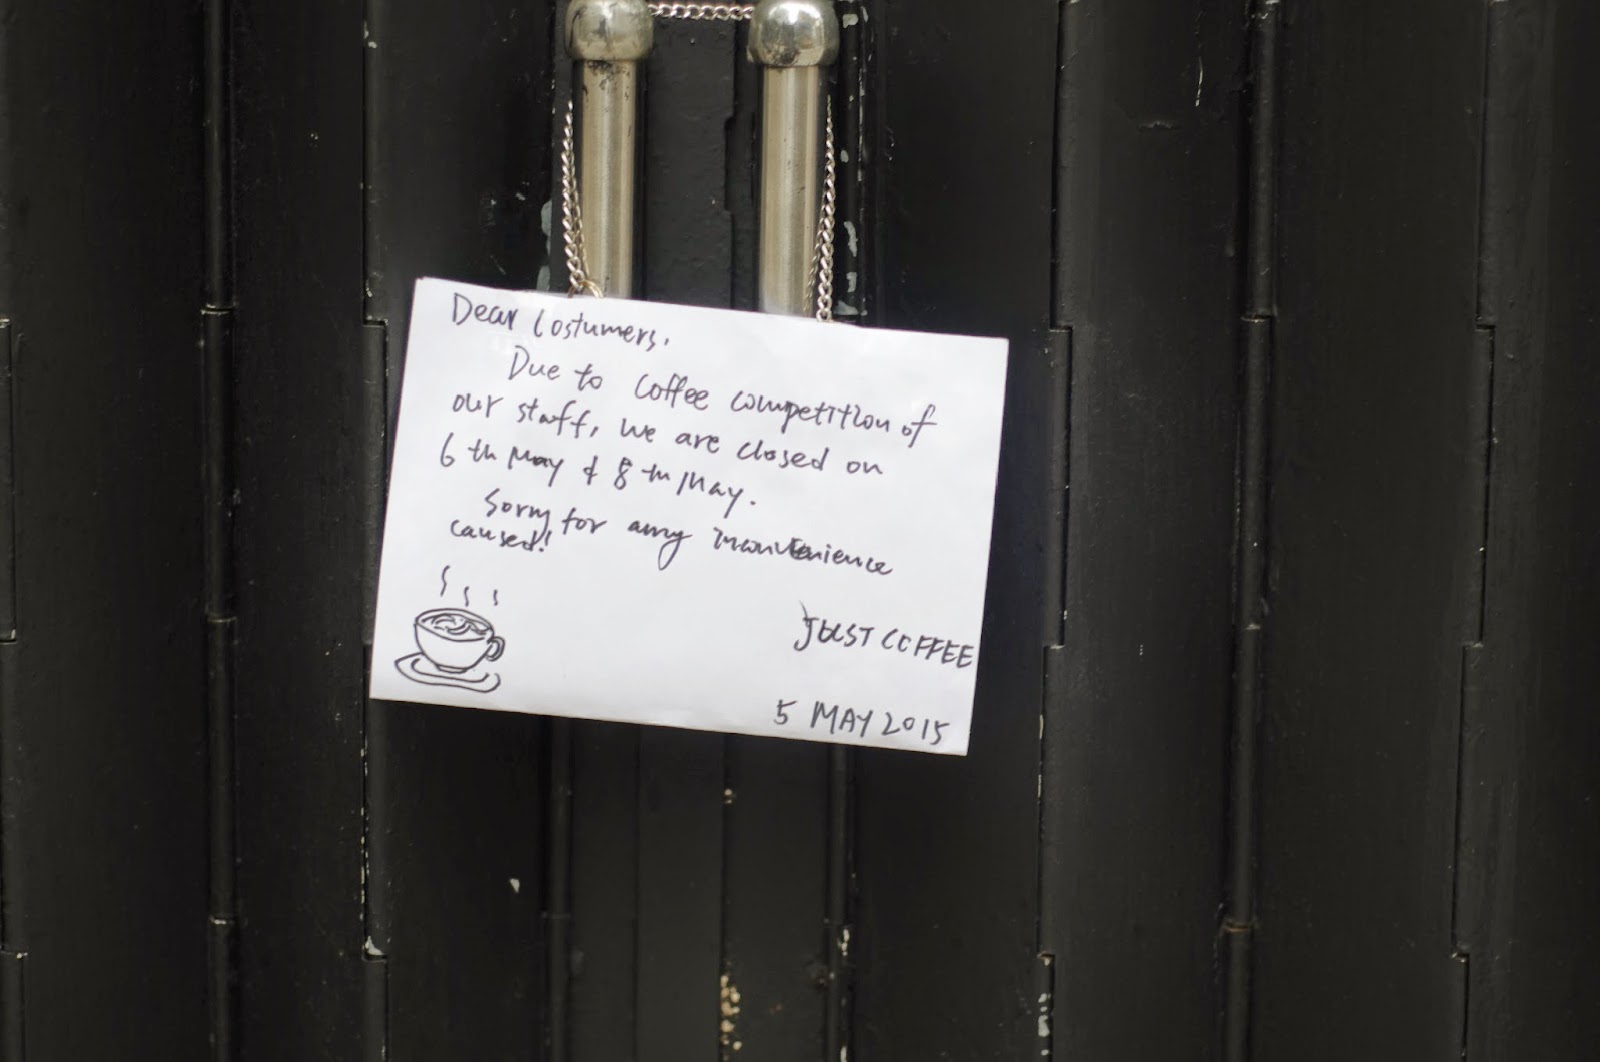 Dear Costumers,
Due to coffee competition of
our staff, we are closed on
6th May & 8th May.
Sorry for any inconvenience
caused!
JUST COFFEE
5 MAY 2015